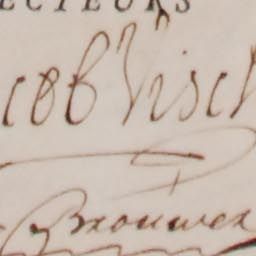 ECTEURS
cob Visc
Brouwer